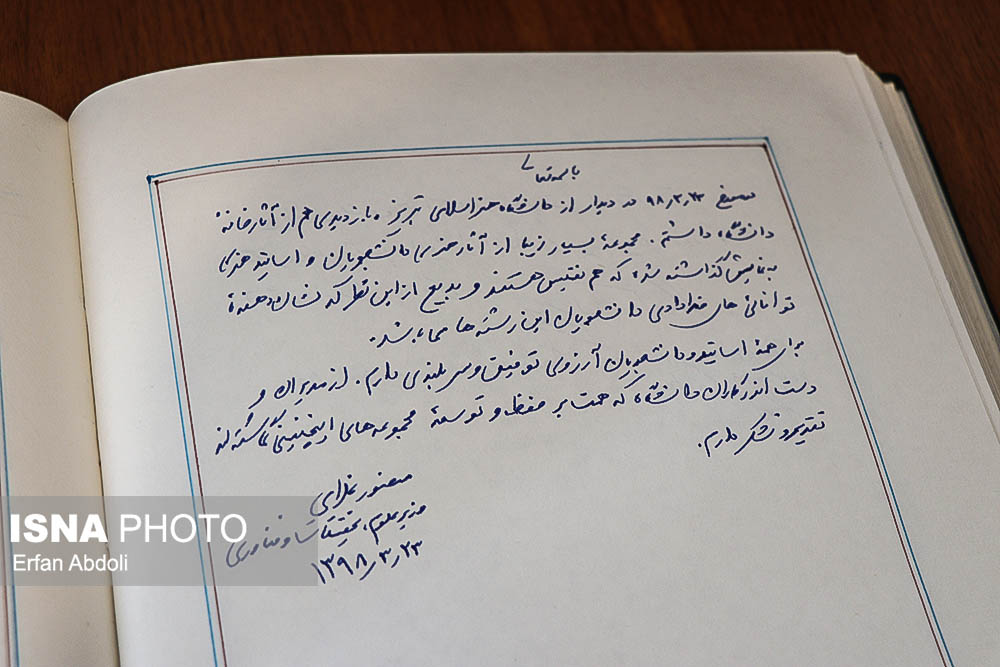 باسمه‌تعالی
مورخ ۹۸٫۳٫۲۳ در دیدار از دانشگاه هنر اسلامی تبریز، بازدیدی هم از آثارخانهٔ
دانشگاه داشتم. مجموعهٔ بسیار زیبا از آثار هنری دانشجویان و اساتید هنری
به نمایش گذاشته شده که هم نفیس هستند و بدیع از این نظر که نشان‌دهندهٔ
توانائی های خدادادی دانشجویان این رشته‌ها می‌باشد.
برای همهٔ اساتید و دانشجویان آرزوی توفیق و سربلندی دارم. از مدیران و
دست اندرکاران دانشگاه که همت بر حفظ و توسعهٔ مجموعه‌های اینچنینی گماشته‌اند
تقدیر و تشکر دارم.
منصور غلامی
وزیر علوم، تحقیقات و فناوری
۱۳۹۸٫۳٫۲۳
ISNA PHOTO
Erfan Abdoli